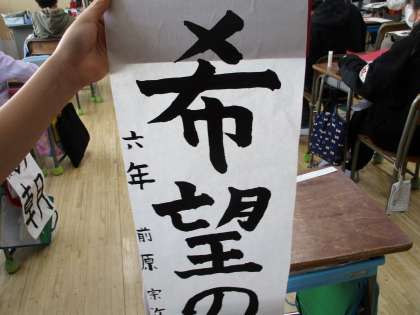 希望の
六年
前原
朝